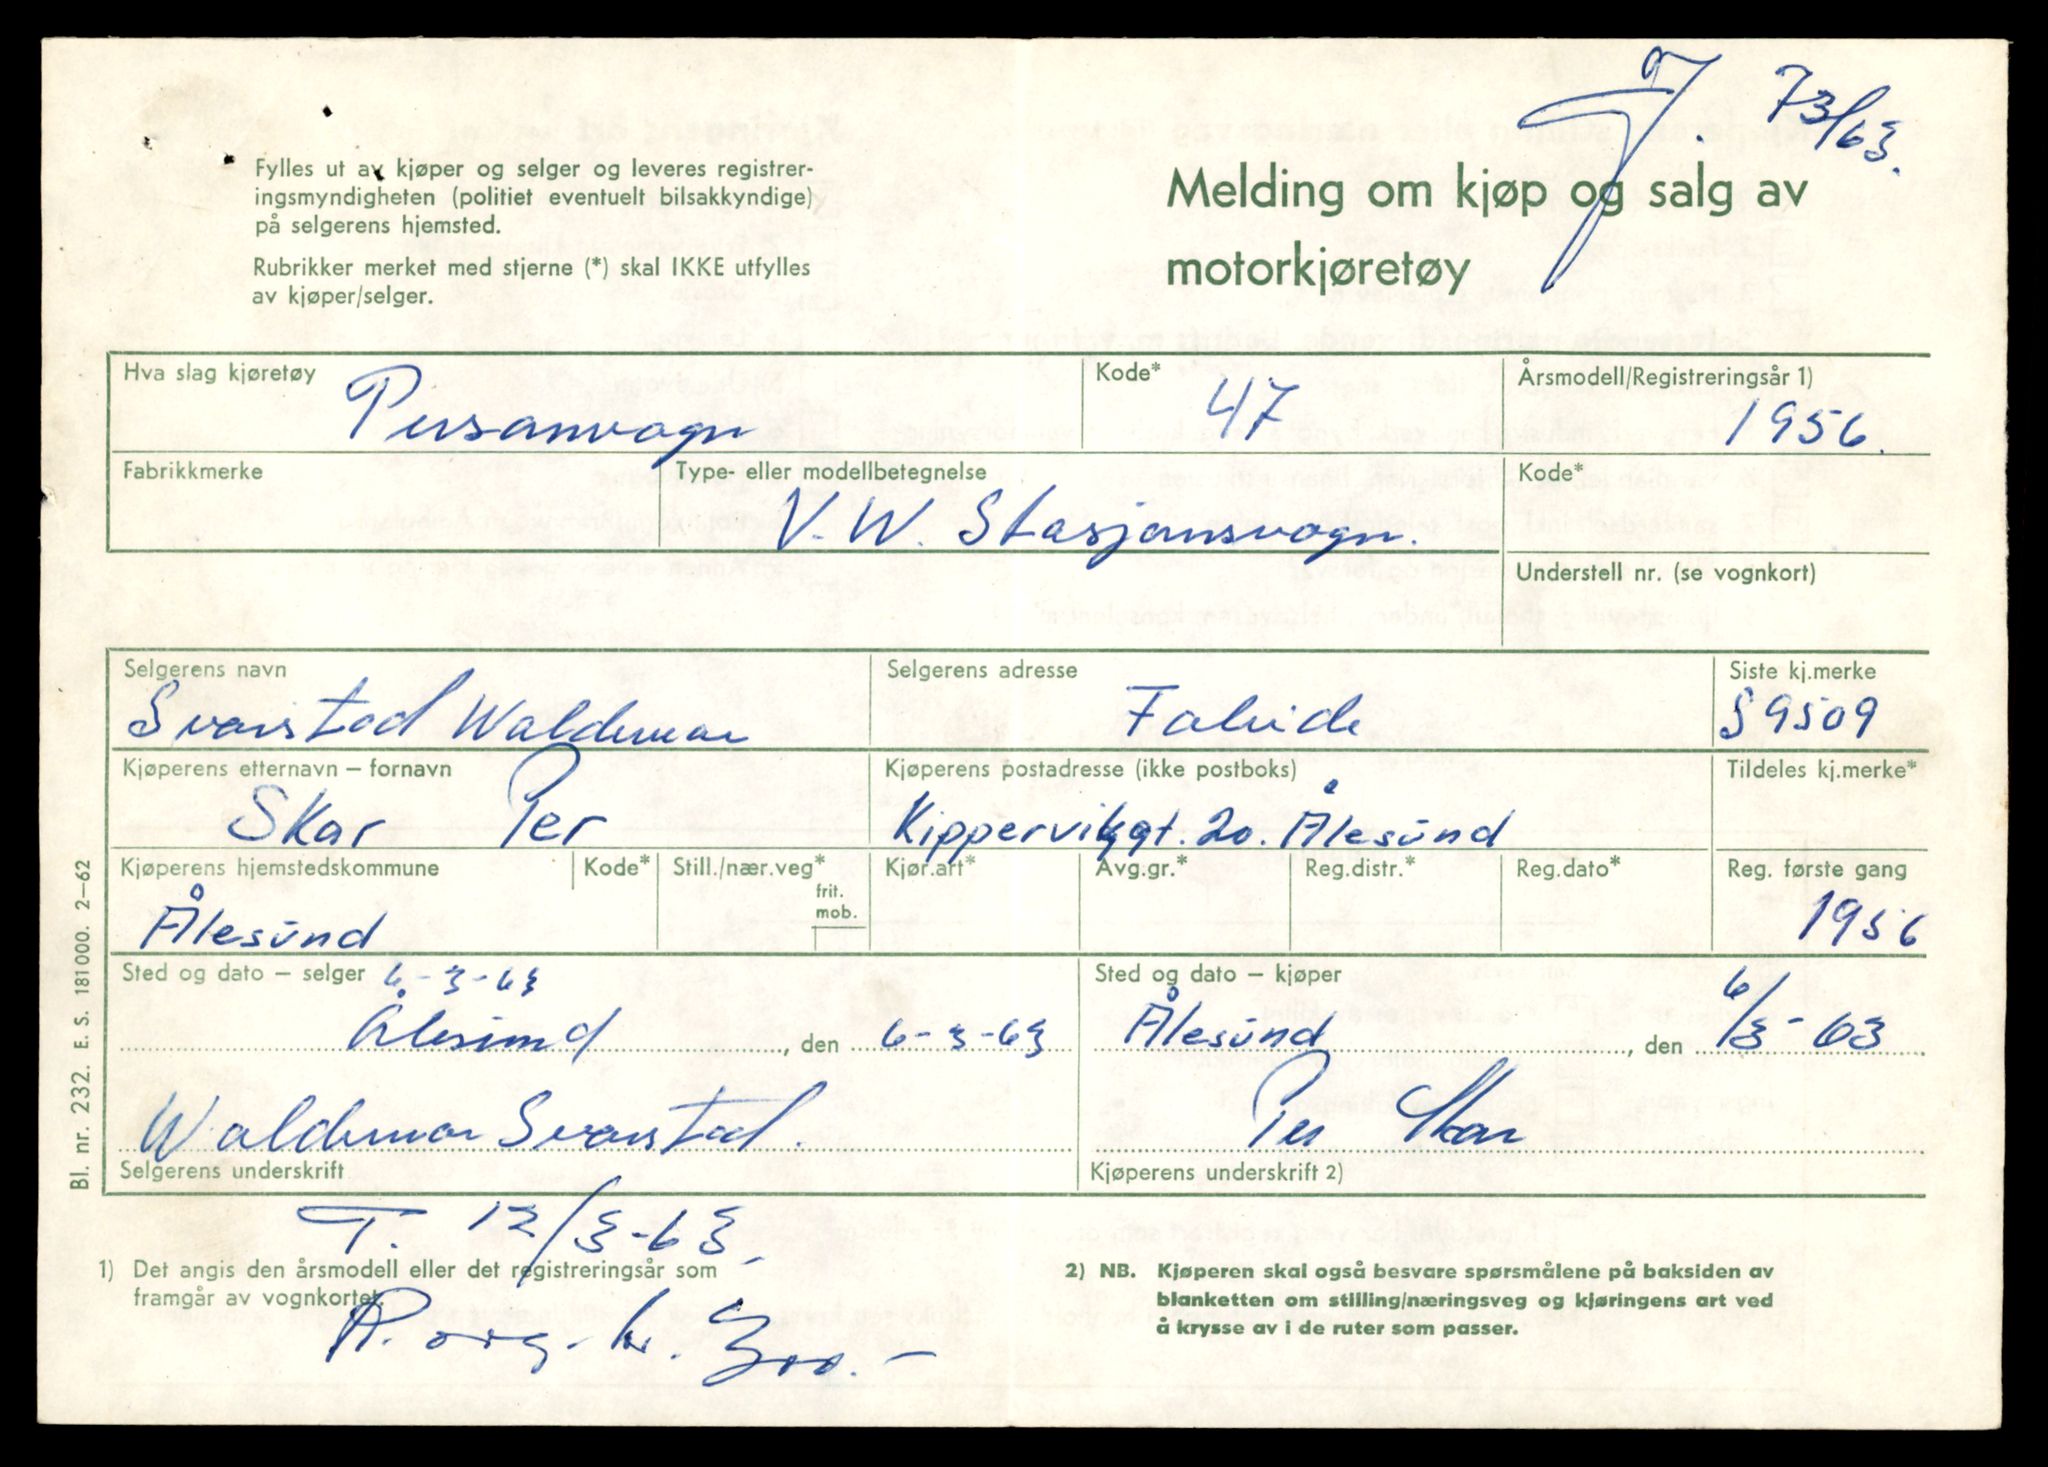 J. 73/63.
Fylles ut av kjøper og selger og leveres registrer-
ingsmyndigheten (politiet eventuelt bilsakkyndige)
på selgerens hjemsted.
Rubrikker merket med stjerne (*) skal IKKE utfylles
av kjøper/selger.
Melding om kjøp og salg av
motorkjøretøy
Hva slag kjøretøy
Kode*
Årsmodell/Registreringsår 1)
Pusanvogn 47 1956.
Fabrikkmerke
Type- eller modellbetegnelse
Kode*
V.W. Stasjonsvogn.
Understell nr. (se vognkort)
Selgerens navn
Selgerens adresse
Siste kj.merke
Svarstad Waldemar S 9509
Kjøperens etternavn – fornavn
Kjøperens postadresse (ikke postboks)
Tildeles kj.merke*
Skar Per Kipperviksgt. 20. Ålesund
Kjøperens hjemstedskommune
Kode*
Still./nær.veg*
frit.
mob.
Kjør.art*
Avg.gr.*
Reg.distr.*
Reg.dato*
Reg. første gang
Ålesund 1956
Sted og dato – selger 6-3-63
Sted og dato – kjøper
Ålesund, den 6-3-63
Ålesund, den 6/3-63
Waldemar Svarstad.
Per Skar
Selgerens underskrift
Kjøperens underskrift 2)
T. 12/3-63.
1) Det angis den årsmodell eller det registreringsår som
framgår av vognkortet.
R. org. kr. 300.-
2) NB. Kjøperen skal også besvare spørsmålene på baksiden av
blanketten om stilling/næringsveg og kjøringens art ved
å krysse av i de ruter som passer.
Bl. nr. 232. E. S. 181000. 2–62